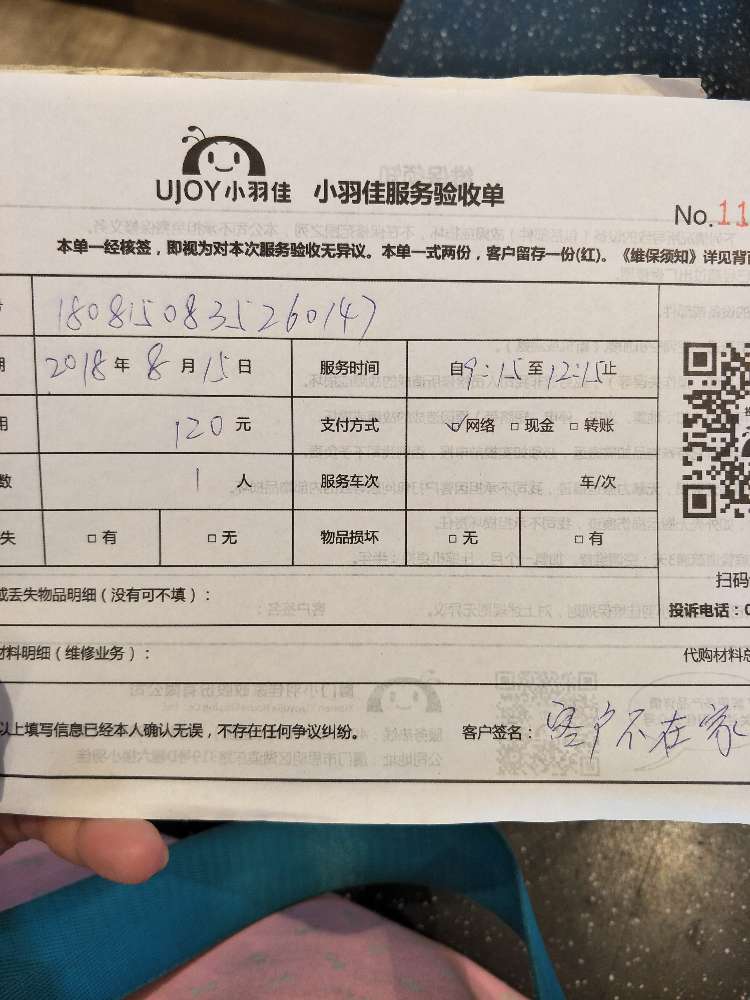 UJOY小羽佳 小羽佳服务验收单
No.11
本单一经核签，即视为对本次服务验收无异议。本单一式两份，客户留存一份(红)。《维保须知》详见背面
1808150835260147
期 2018年8月15日 服务时间 自9:15至12:15止
用 120元 支付方式 ☑网络 □现金 □转账
数 1人 服务车次 车/次
失 □有 □无 物品损坏 □无 □有
扫码
或丢失物品明细（没有可不填）：
投诉电话：0
材料明细（维修业务）： 代购材料总
以上填写信息已经本人确认无误，不存在任何争议纠纷。 客户签名：客户不在家